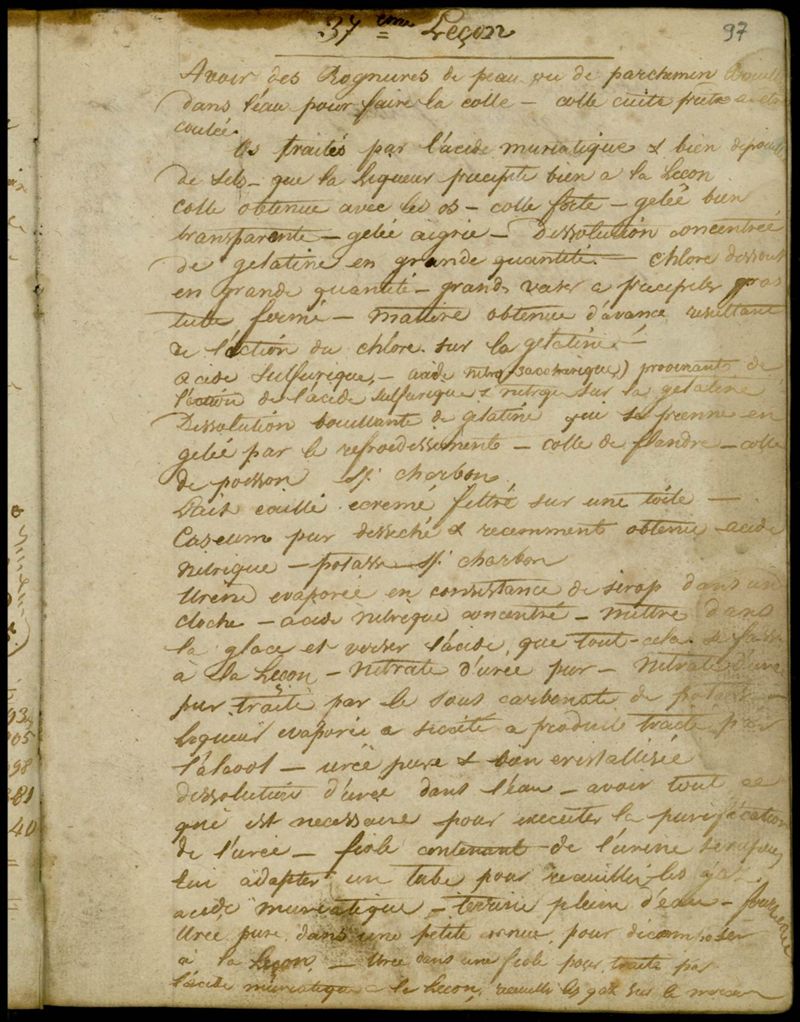 37 ème Leçon
97
Avoir des Rognures de peau ou de parchemin
dans l'eau pour faire la colle – colle cuite prete a etre
coulée.
Os traités par l'acide muriatique & bien
de sels – que la liqueur precipite bien a la Leçon
Colle obtenue avec les os – colle forte – gelée bien
transparente – gelée aigrie – Dissolution concentrée
de gelatine en grande quantité. – chlore dissout
en grande quantité – grands vases a precipiter
tube fermé – matiere obtenue d'avance resultant
de l'action du chlore sur la gelatine –
acide Sulfurique, – acide nitro-saccharique) provenant de
l'action de l'acide sulfurique & nitrique sur la gelatine
Dissolution bouillante de gelatine qui se prenne en
gelée par le refroidissement – colle de flandre – colle
de poisson id. charbon
Lait caillé ecremé filtré sur une toile –
Caseum pur desseché & recemment obtenu – acide
nitrique – potasse – id. charbon
Urine evaporée en consistance de sirop dans un
cloche – acide nitrique concentré – mettre dans
la glace et verser l'acide, que tout cela se fasse
à la Leçon – Nitrate d'urée pur – Nitrate d'urée
pur traité par le sous carbonate de potasse –
liqueur evaporée a siccité a produit traité par
l'alcool – urée pure & bien cristallisée
dissolution d'urée dans l'eau – avoir tout ce
qui est necessaire pour executer la purification
de l'urée – fiole contenant de l'urine
lui adapter un tube pour recueillir les gaz
acide muriatique – terrine pleine d'eau –
Urée pure dans une petite cornue, pour décomposer
à la Leçon. – Urée dans une fiole pour traité par
l'acide muriatique a la Leçon, recueillir les gaz sur le mercure
034
905
98
381
40